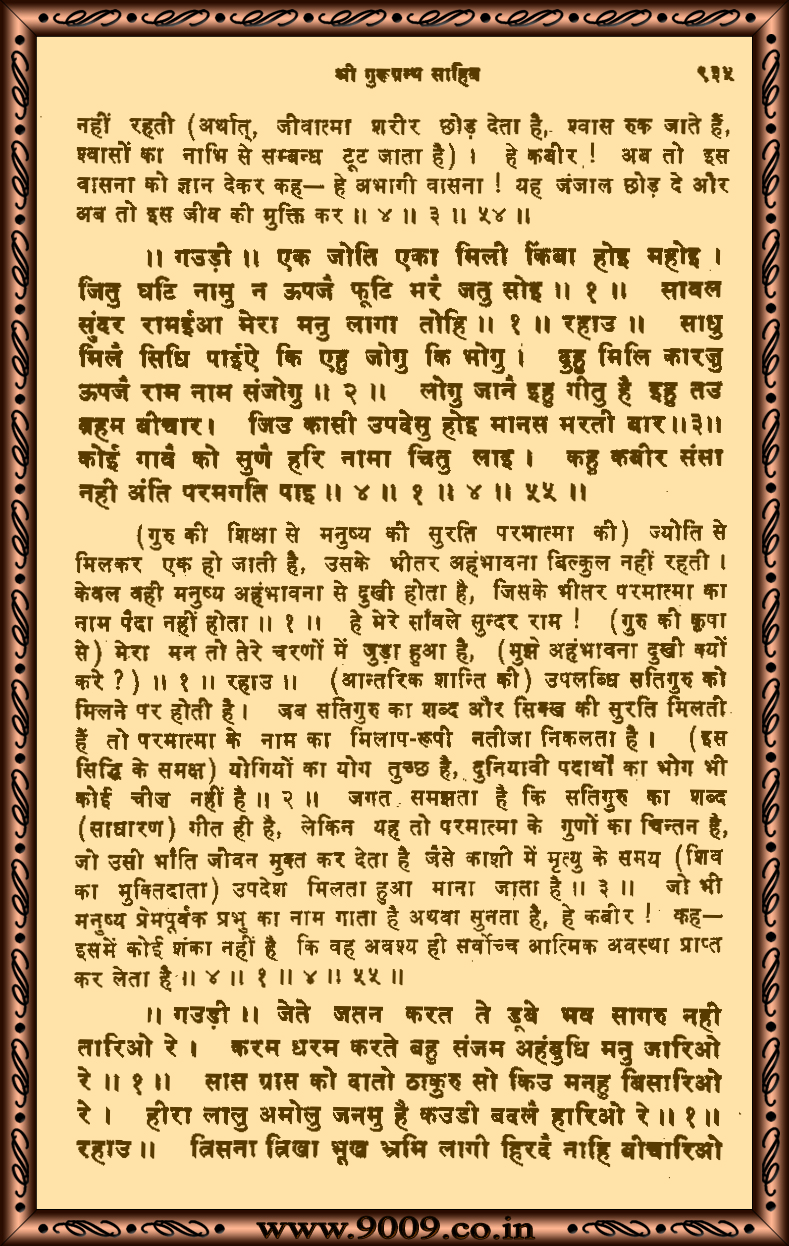 श्री गुरूग्रन्थ साहिब ९३५
नहीं रहती (अर्थात्, जीवात्मा शरीर छोड़ देता है, श्वास रुक जाते हैं,
श्वासों का नाभि से सम्बन्ध टूट जाता है) । हे कबीर ! अब तो इस
वासना को ज्ञान देकर कह— हे अभागी वासना ! यह जंजाल छोड़ दे और
अब तो इस जीव की मुक्ति कर ॥ ४ ॥ ३ ॥ ५४ ॥
॥ गउड़ी ॥ एक जोति एका मिली किंबा होइ महोइ ।
जितु घटि नामु न ऊपजै फूटि मरै जतु सोइ ॥ १ ॥ सावल
सुंदर रामईआ मेरा मनु लागा तोहि ॥ १ ॥ रहाउ ॥ साधु
मिलै सिधि पाईऐ कि एहु जोगु कि भोगु । दुहु मिलि कारजु
ऊपजै राम नाम संजोगु ॥ २ ॥ लोगु जानै इहु गीतु है इहु तउ
ब्रहम बीचार। जिउ कासी उपदेसु होइ मानस मरती बार ॥३॥
कोई गावै को सुणै हरि नामा चितु लाइ । कहु कबीर संसा
नही अंति परमगति पाइ ॥ ४ ॥ १ ॥ ४ ॥ ५५ ॥
(गुरु की शिक्षा से मनुष्य की सुरति परमात्मा की) ज्योति से
मिलकर एक हो जाती है, उसके भीतर अहंभावना बिल्कुल नहीं रहती ।
केवल वही मनुष्य अहंभावना से दुखी होता है, जिसके भीतर परमात्मा का
नाम पैदा नहीं होता ॥ १ ॥ हे मेरे साँवले सुन्दर राम ! (गुरु की कृपा
से) मेरा मन तो तेरे चरणों में जुड़ा हुआ है, (मुझे अहंभावना दुखी क्यों
करे ?) ॥ १ ॥ रहाउ ॥ (आन्तरिक शान्ति की) उपलब्धि सतिगुरु को
मिलने पर होती है। जब सतिगुरु का शब्द और सिक्ख की सुरति मिलती
हैं तो परमात्मा के नाम का मिलाप-रूपी नतीजा निकलता है । (इस
सिद्धि के समक्ष) योगियों का योग तुच्छ है, दुनियावी पदार्थों का भोग भी
कोई चीज़ नहीं है ॥ २ ॥ जगत समझता है कि सतिगुरु का शब्द
(साधारण) गीत ही है, लेकिन यह तो परमात्मा के गुणों का चिन्तन है,
जो उसी भाँति जीवन मुक्त कर देता है जैसे काशी में मृत्यु के समय (शिव
का मुक्तिदाता) उपदेश मिलता हुआ माना जाता है ॥ ३ ॥ जो भी
मनुष्य प्रेमपूर्वक प्रभु का नाम गाता है अथवा सुनता है, हे कबीर ! कह—
इसमें कोई शंका नहीं है कि वह अवश्य ही सर्वोच्च आत्मिक अवस्था प्राप्त
कर लेता है ॥ ४ ॥ १ ॥ ४ ॥ ५५ ॥
॥ गउड़ी ॥ जेते जतन करत ते डूबे भव सागरु नही
तारिओ रे । करम धरम करते बहु संजम अहंबुधि मनु जारिओ
रे ॥ १ ॥ सास ग्रास को दातो ठाकुरु सो किउ मनहु बिसारिओ
रे । हीरा लालु अमोलु जनमु है कउडी बदलै हारिओ रे ॥ १ ॥
रहाउ ॥ त्रिसना त्रिखा भूख भ्रमि लागी हिरदै नाहि बीचारिओ
www.9009.co.in